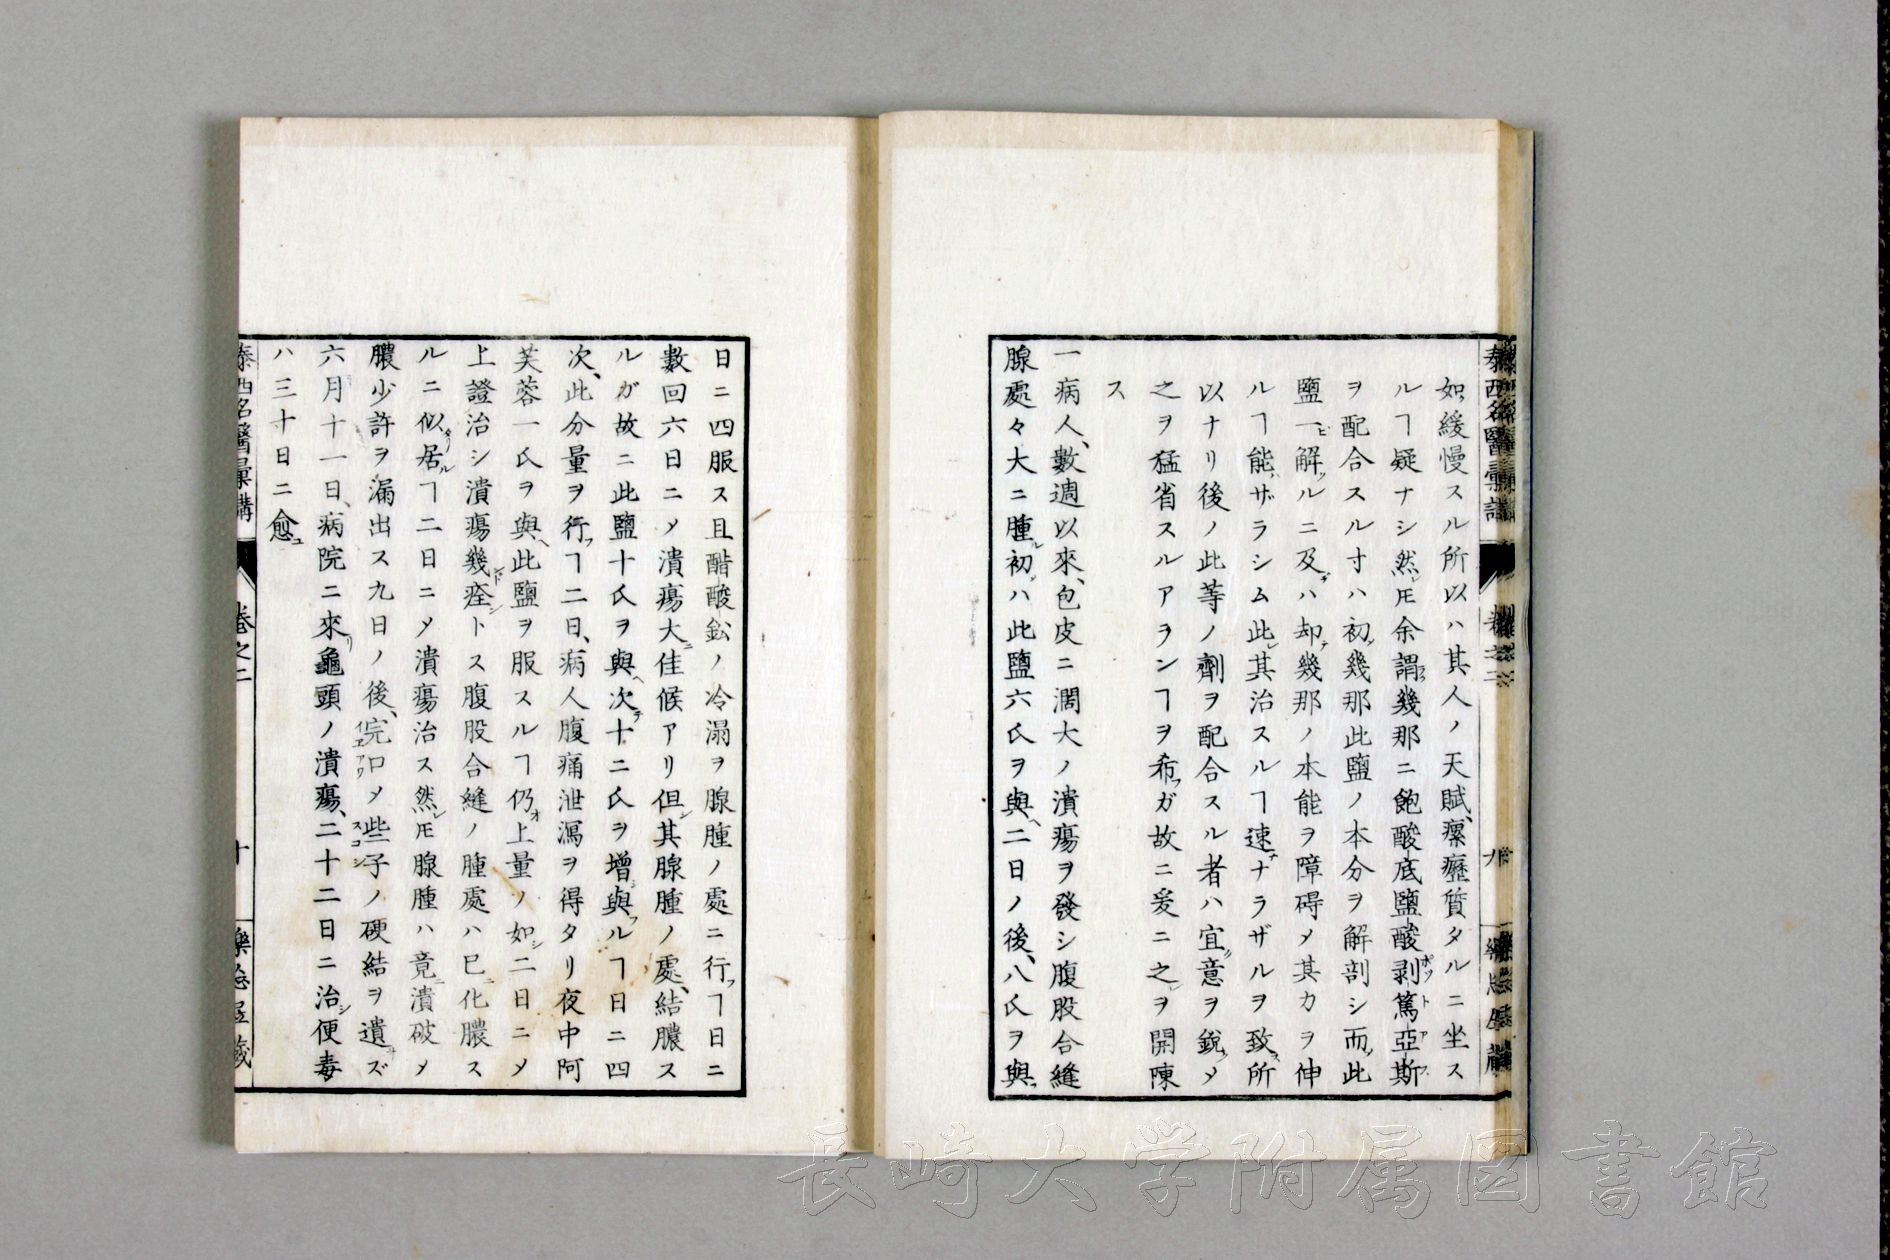 如緩慢スル所以ハ其人ノ天賦、瘰癧質タルニ坐ス
ルヿ疑ナシ然レ𪜈余謂ラク幾那ニ飽酸底鹽酸剥篤亞斯
ヲ配合スル寸ハ初メ幾那此鹽ノ本分ヲ解剖シ而ノ此
鹽一ビ解クルニ及ンデハ却テ幾那ノ本能ヲ障碍メ其力ヲ伸
ルヿ能ハザラシム此レ其治スルヿ速ナラザルヲ致ス所
以ナリ後ノ此等ノ劑ヲ配合スル者ハ宜ク意ヲ銳ノメ
之ヲ猛省スルアランヿヲ希フガ故ニ爰ニ之レヲ開陳
ス
一病人、數週以來、包皮ニ濶大ノ潰瘍ヲ發シ腹股合縫
腺處々大ニ腫ル初メハ此鹽六氏ヲ與ヘ、二日ノ後、八氏ヲ與フ
泰西名醫彙講 卷之二 九
日ニ四服ス且醋酸鉛ノ冷溻ヲ腺腫ノ處ニ行フヿ日ニ
數回六日ニメ潰瘍大ニ佳候アリ但シ其腺腫ノ處、結膿ス
ルガ故ニ此鹽十氏ヲ與ヘ次テ十二氏ヲ增シ與フルヿ日ニ四
次、此分量ヲ行フヿ二日、病人腹痛泄瀉ヲ得タリ夜中阿
芙蓉一氏ヲ與ヘ此鹽ヲ服スルヿ仍ホ上量ノ如シ二日ニメ
上證治シ潰瘍幾ド痊ントス腹股合縫ノ腫處ハ已ニ化膿ス
ルニ似タリ居ルヿ二日ニメ潰瘍治ス然レ𪜈腺腫ハ竟ニ潰破メ
膿少許ヲ漏出ス九日ノ後、完口メ些子ノ硬結ヲ遺サズ
六月十一日、病院ニ來リ龜頭ノ潰瘍、二十二日ニ治シ便毒
ハ三十日ニ愈ユ
泰西名醫彙講 卷之二 十
長崎大学附属図書館